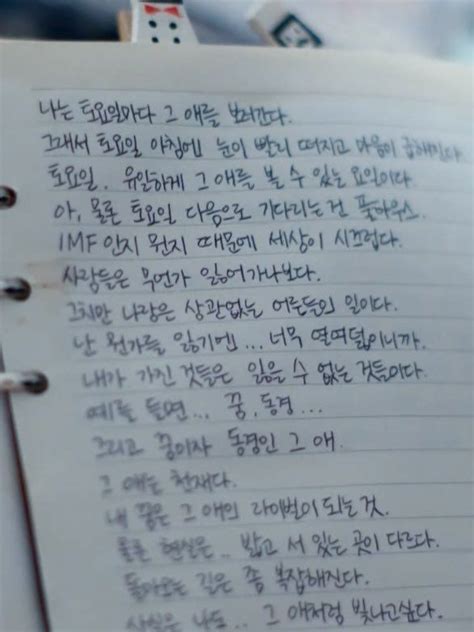 나는 토요일마다 그 애를 보러간다.
그래서 토요일 아침엔 눈이 빨리 떠지고 마음이 급해진다.
토요일. 유일하게 그 애를 볼 수 있는 요일이다.
아, 물론 토요일 다음으로 기다리는건 풀하우스.
IMF 인지 뭔지 때문에 세상이 시끄럽다.
사람들은 무언가 잃어가나보다.
그치만 나랑은 상관없는 어른들의 일이다.
난 뭔가를 잃기엔 ... 너무 열여덟이니까.
내가 가진 것들은 잃을 수 없는 것들이다.
예를 들면 ... 꿈, 동경 ...
그리고 꿈이자 동경인 그 애.
그 애는 천재다.
내 꿈은 그 애의 라이벌이 되는 것.
물론 현실은.. 밟고 서 있는 곳이 다르다.
돌아오는 길은 좀 복잡해진다.
사실은 나도.. 그 애처럼 빛나고싶다.